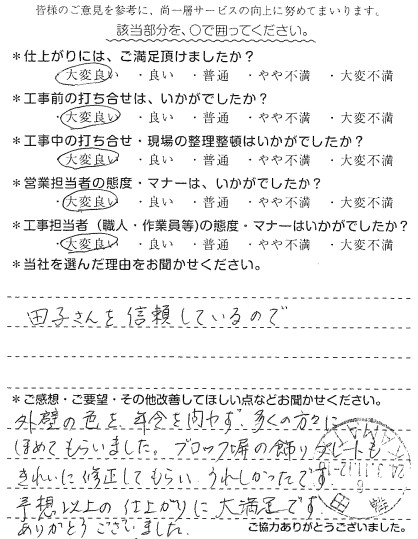 皆様のご意見を参考に、尚一層サービスの向上に努めてまいります。
該当部分を、○で囲ってください。
*仕上がりには、ご満足頂けましたか?
・大変良い ・良い ・普通 ・やや不満 ・大変不満
*工事前の打ち合せは、いかがでしたか?
・大変良い ・良い ・普通 ・やや不満 ・大変不満
*工事中の打ち合せ・現場の整理整頓はいかがでしたか?
・大変良い ・良い ・普通 ・やや不満 ・大変不満
*営業担当者の態度・マナーは、いかがでしたか?
・大変良い ・良い ・普通 ・やや不満 ・大変不満
*工事担当者(職人・作業員等)の態度・マナーはいかがでしたか?
・大変良い ・良い ・普通 ・やや不満 ・大変不満
*当社を選んだ理由をお聞かせください。
田子さんを信頼しているので
*ご感想・ご要望・その他改善してほしい点などお聞かせください。
外壁の色を年令を問わず、多くの方々に
ほめてもらいました。ブロック塀の飾りプレートも
きれいに修正してもらい、うれしかったです。
予想以上の仕上がりに大満足です。
ありがとうございました。
ご協力ありがとうございました。